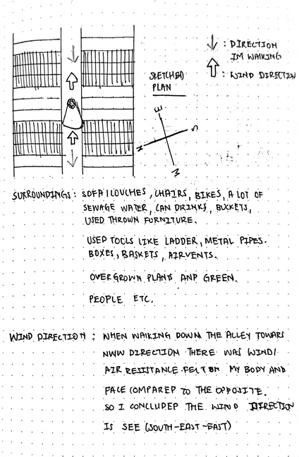 : DIRECTION
IM WALKING
: WIND DIRECTION
SKETCHED
PLAN
E
S
N
W
SURROUNDINGS : SOFA / COUCHES, CHAIRS, BIKES, A LOT OF
SEWAGE WATER, CAN DRINKS, BUCKETS,
USED THROWN FURNITURE.
USED TOOLS LIKE LADDER, METAL PIPES.
BOXES, BASKETS, AIRVENTS.
OVERGROWN PLANTS AND GREEN.
PEOPLE ETC.
WIND DIRECTION : WHEN WALKING DOWN THE ALLEY TOWARS
NWW DIRECTION THERE WAS WIND/
AIR RESISTANCE FELT ON MY BODY AND
FACE COMPARED TO THE OPPOSITE.
SO I CONCLUDED THE WIND DIRECTION
IS SEE (SOUTH-EAST-EAST)